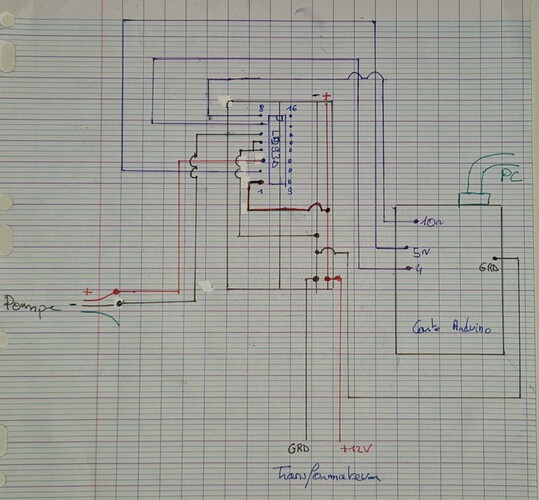 - +
8 16
L293D
1 9
PC
10~
5~
4
GRD
Carte Arduino
+
Pompe -
GRD +12V
Transformateur